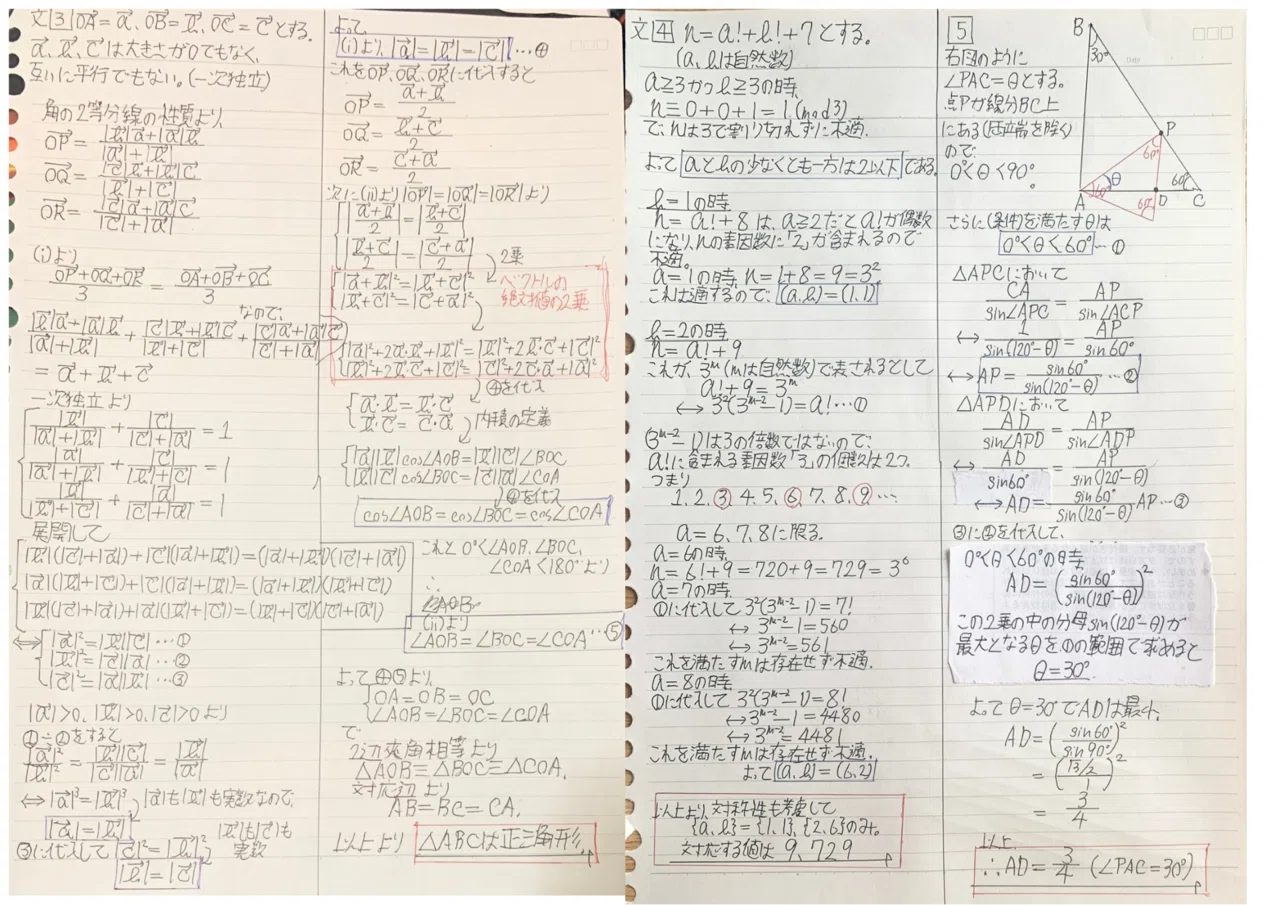 文③ OA=a, OB=b, OC=cとする。
a, b, cは大きさが0でもなく、
互いに平行でもない。(一次独立)
角の2等分線の性質より、
OP = (|b|a+|a|b)/(|a|+|b|)
OQ = (|c|b+|b|c)/(|b|+|c|)
OR = (|c|a+|a|c)/(|c|+|a|)
(i)より
(OP+OQ+OR)/3 = (OA+OB+OC)/3
なので、
(|b|a+|a|b)/(|a|+|b|) + (|c|b+|b|c)/(|b|+|c|) + (|c|a+|a|c)/(|c|+|a|)
= a+b+c
一次独立より
|b|/(|a|+|b|) + |c|/(|c|+|a|) = 1
|a|/(|a|+|b|) + |c|/(|b|+|c|) = 1
|b|/(|b|+|c|) + |a|/(|c|+|a|) = 1
展開して
|b|(|c|+|a|)+|c|(|a|+|b|)=(|a|+|b|)(|c|+|a|)
|a|(|b|+|c|)+|c|(|a|+|b|)=(|a|+|b|)(|b|+|c|)
|b|(|c|+|a|)+|a|(|b|+|c|)=(|b|+|c|)(|c|+|a|)
⇔ |a|²=|b||c| …①
|b|²=|c||a| …②
|c|²=|a||b| …③
|a|>0, |b|>0, |c|>0より
①÷②をすると
|a|²/|b|² = |b||c|/|c||a| = |b|/|a|
⇔|a|³=|b|³, |a|も|b|も実数なので、
|a|=|b|
|b|も|c|も
実数
③に代入して |c|²=|b|²,
|b|=|c|
よって
(i)より, |a|=|b|=|c| …④
これをOP, OQ, ORに代入すると
OP = (a+b)/2
OQ = (b+c)/2
OR = (c+a)/2
次に(ii)より |OP|=|OQ|=|OR|より
|(a+b)/2| = |(b+c)/2|
|(b+c)/2| = |(c+a)/2|
2乗
|a+b|²=|b+c|²
|b+c|²=|c+a|²
ベクトルの
絶対値の2乗
|a|²+2a・b+|b|²=|b|²+2b・c+|c|²
|b|²+2b・c+|c|²=|c|²+2c・a+|a|²
④を代入
a・b = b・c
b・c = c・a
内積の定義
|a||b|cos∠AOB=|b||c|∠BOC
|b||c|cos∠BOC=|c||a|∠COA
④を代入
cos∠AOB=cos∠BOC=cos∠COA
これと 0°<∠AOB, ∠BOC,
∠COA<180°より
∴
∠AOB
(ii)より
∠AOB=∠BOC=∠COA …⑤
よって④⑤より、
OA=OB=OC
∠AOB=∠BOC=∠COA
で
2辺夾角相等より
△AOB≡△BOC≡△COA,
対応辺より
AB=BC=CA,
以上より △ABCは正三角形,
文④ n=a!+b!+7とする。
(a, bは自然数)
a≧3かつb≧3の時,
n≡0+0+1=1 (mod3)
で, nは3で割り切れずに不適.
よって aとbの少なくとも一方は2以下である。
b=1の時,
n=a!+8は, a≧2だとa!が偶数
になり, nの素因数に「2」が含まれるので
不適。
a=1の時, n=1+8=9=3²
これは適するので、(a,b)=(1,1)
b=2の時,
n=a!+9
これが、3ᵐ (mは自然数)で表されるとして
a!+9=3ᵐ
⇔3²(3ᵐ⁻²-1)=a! …①
(3ᵐ⁻²-1)は3の倍数ではないので、
a!に含まれる素因数「3」の個数は2つ。
つまり
1, 2, ③, 4, 5, ⑥, 7, 8, ⑨ …
a=6, 7, 8に限る。
a=6の時,
n=6!+9=720+9=729=3⁶
a=7の時,
①に代入して 3²(3ᵐ⁻²-1)=7!
⇔ 3ᵐ⁻²-1=560
⇔ 3ᵐ⁻²=561
これを満たすmは存在せず不適.
a=8の時,
①に代入して 3²(3ᵐ⁻²-1)=8!
⇔3ᵐ⁻²-1=4480
⇔3ᵐ⁻²=4481
これを満たすmは存在せず不適.
よって (a,b)=(6,2)
以上より, 対称性も考慮して
{a,b}={1,1}, {2,6}のみ。
対応する値は 9, 729
5
右図のように
∠PAC=θとする。
点Pが線分BC上
にある(両端を除く)
ので
0°<θ<90°。
B
30°
P
60°
A
60°
θ
60°
D
60°
C
さらに(条件)を満たすθは
0°<θ<60° …①
△APCにおいて
CA/sin∠APC = AP/sin∠ACP
⇔ 1/sin(120°-θ) = AP/sin60°
⇔AP= sin60°/sin(120°-θ) …②
△APDにおいて
AD/sin∠APD = AP/sin∠ADP
⇔ AD/sin60° = AP/sin(120°-θ)
⇔AD= sin60°/sin(120°-θ) AP …③
③に②を代入して、
0°<θ<60°の時,
AD=(sin60°/sin(120°-θ))²
この2乗の中の分母sin(120°-θ)が
最大となるθを①の範囲で求めると
θ=30°.
よってθ=30°でADは最小,
AD=(sin60°/sin90°)²
=((√3/2)/1)²
= 3/4
以上
∴AD= 3/4 (∠PAC=30°)